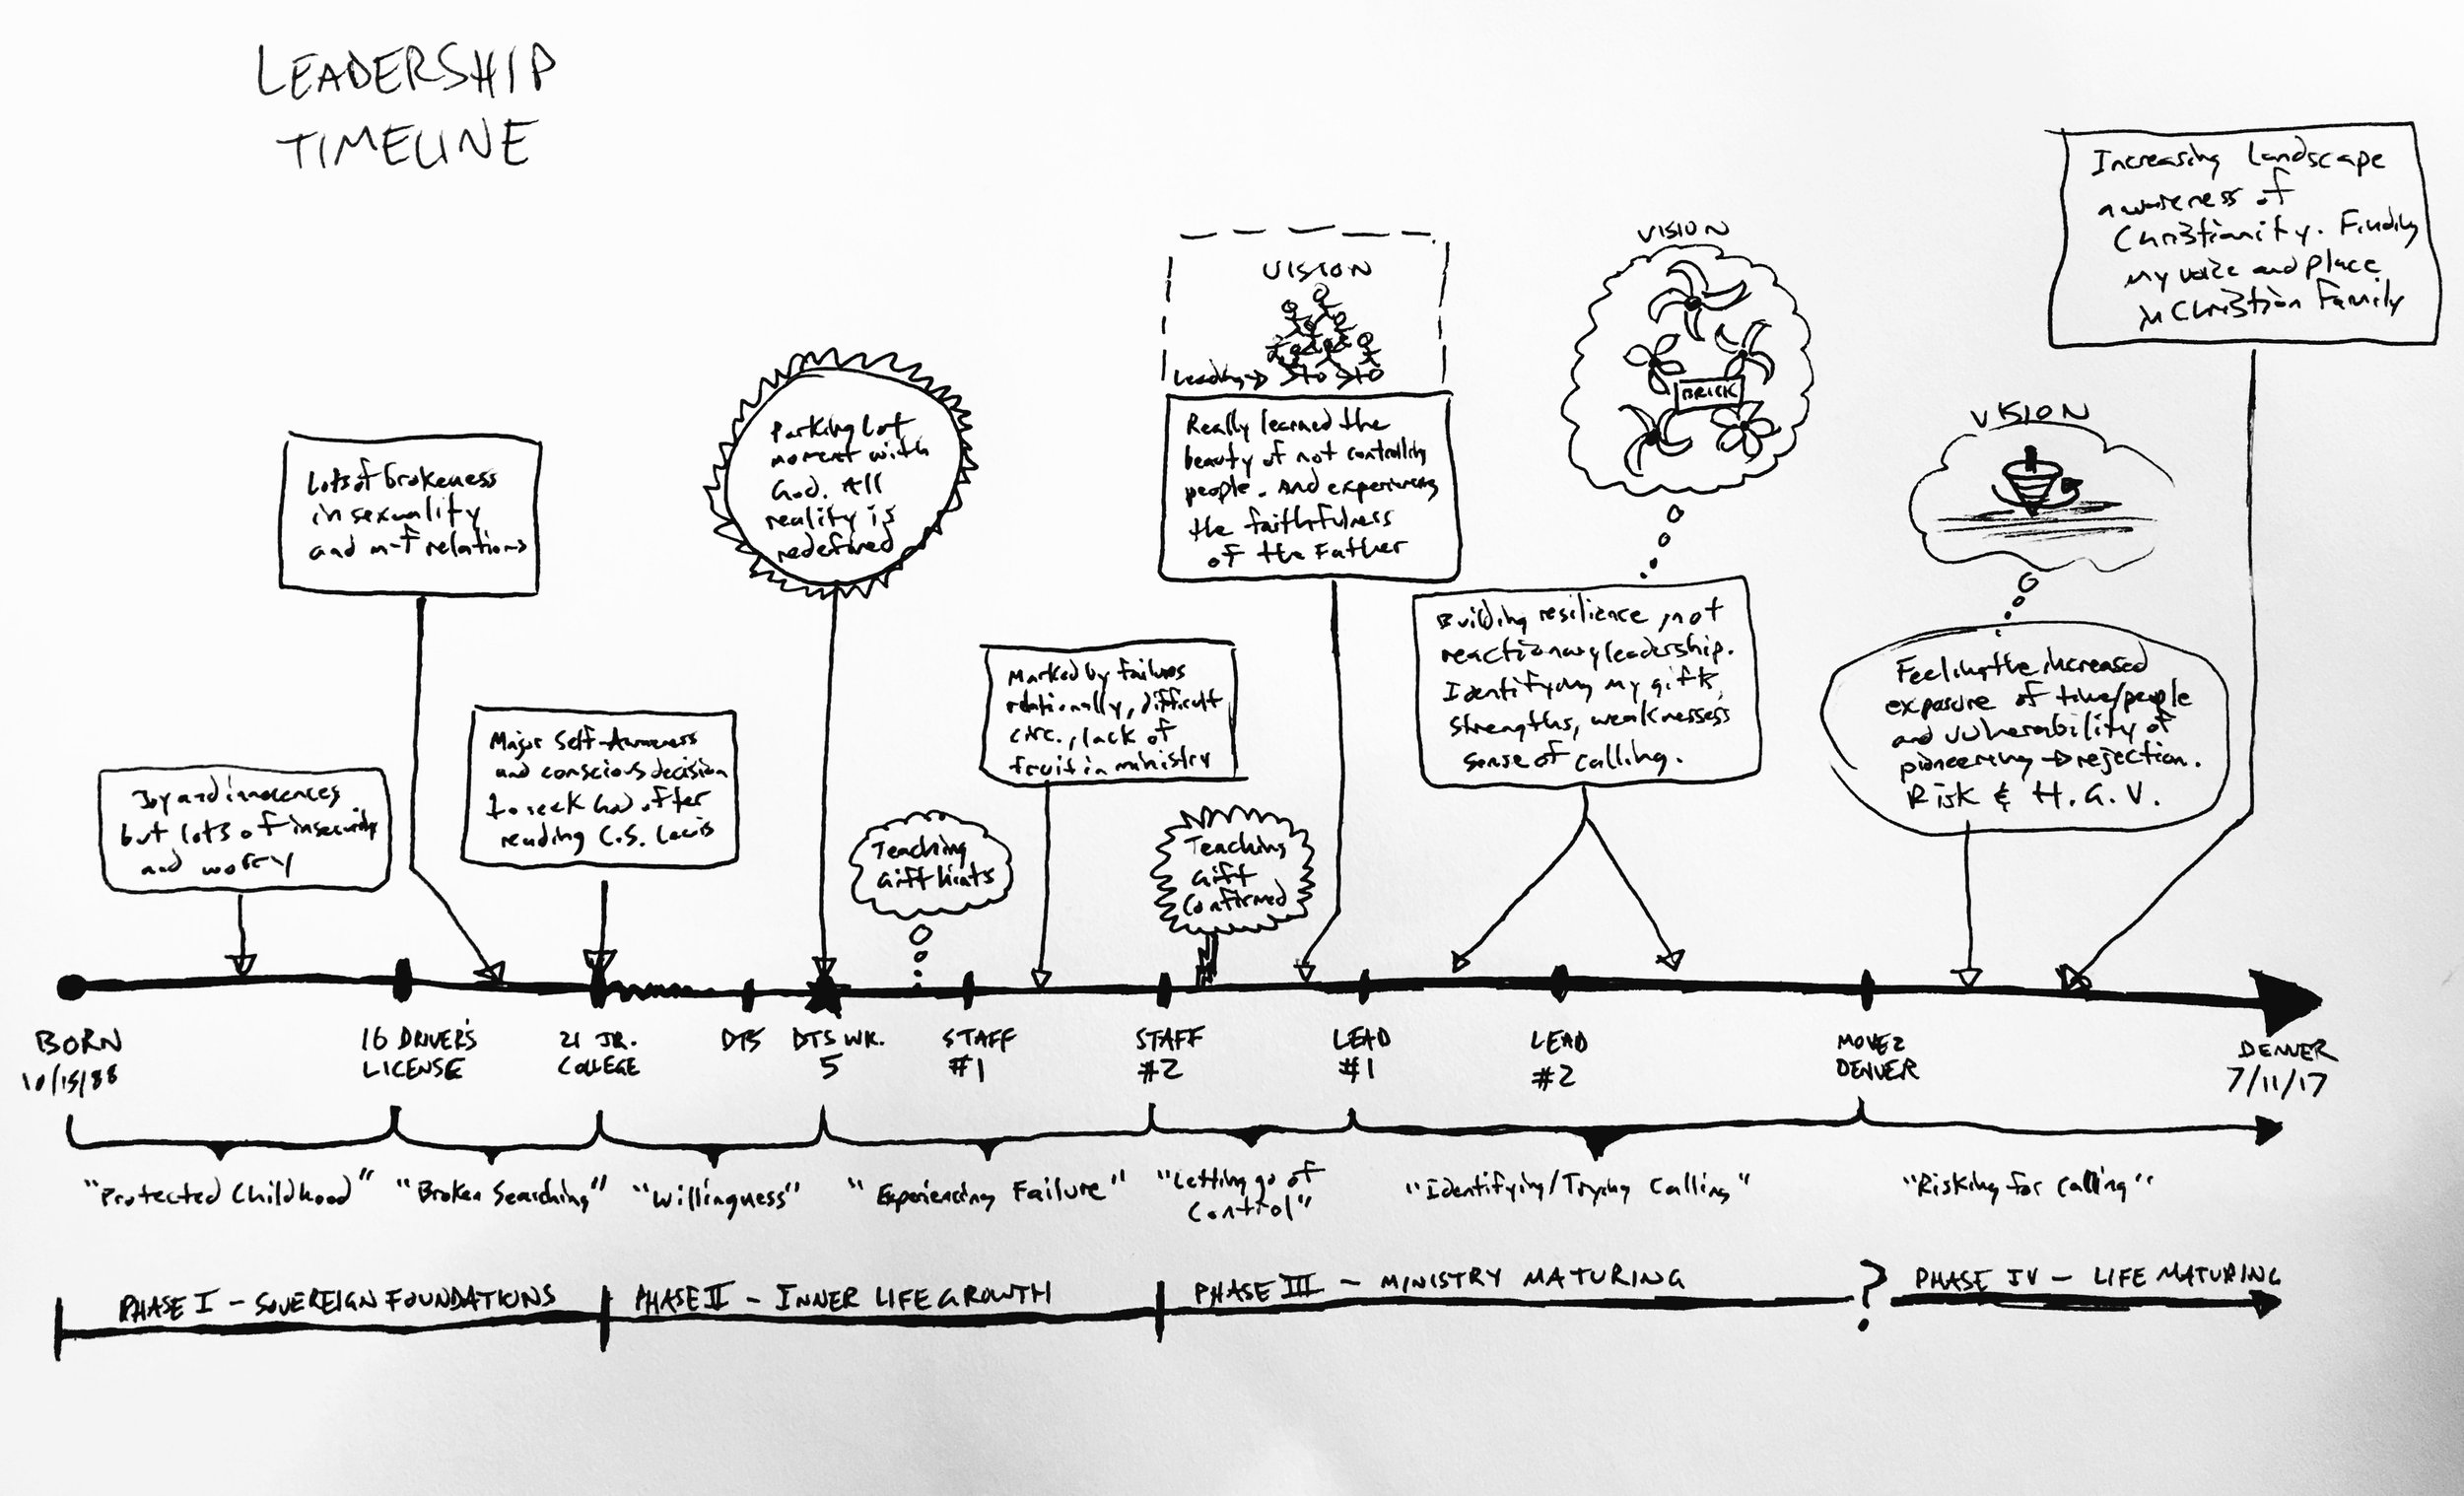 LEADERSHIP
TIMELINE
Increasing Landscape
awareness of
Christianity. Finding
my voice and place
in Christian Family
VISION
VISION
Leading →
BRICK
VISION
Parking Lot
moment with
God. All
reality is
redefined
Really learned the
beauty of not controlling
people. And experiencing
the faithfulness
of the Father
Lots of brokeness
in sexuality
and m-f relations
Building resilience, not
reactionary leadership.
Identifying my gifts,
strengths, weaknessess
sense of calling.
Feeling the increased
exposure of time/people
and vulnerability of
pioneering → rejection.
Risk & H.G.V.
Marked by failures
relationally, difficult
circ., lack of
fruit in ministry
Major Self-Awareness
and conscious decision
to seek God after
reading C.S. Lewis
Joy and innocences
but lots of insecurity
and worry
Teaching
Gift Hints
Teaching
Gift
Confirmed
BORN
10/15/88
16 DRIVER'S
LICENSE
21 JR.
COLLEGE
DTS
DTS WK.
5
STAFF
#1
STAFF
#2
LEAD
#1
LEAD
#2
MOVE 2
DENVER
DENVER
7/11/17
"Protected Childhood"
"Broken Searching"
"Willingness"
"Experiencing Failure"
"Letting go of
Control"
"Identifying/Trying Calling"
"Risking for Calling"
PHASE I - SOVEREIGN FOUNDATIONS
PHASE II - INNER LIFE GROWTH
PHASE III - MINISTRY MATURING
?
PHASE IV - LIFE MATURING